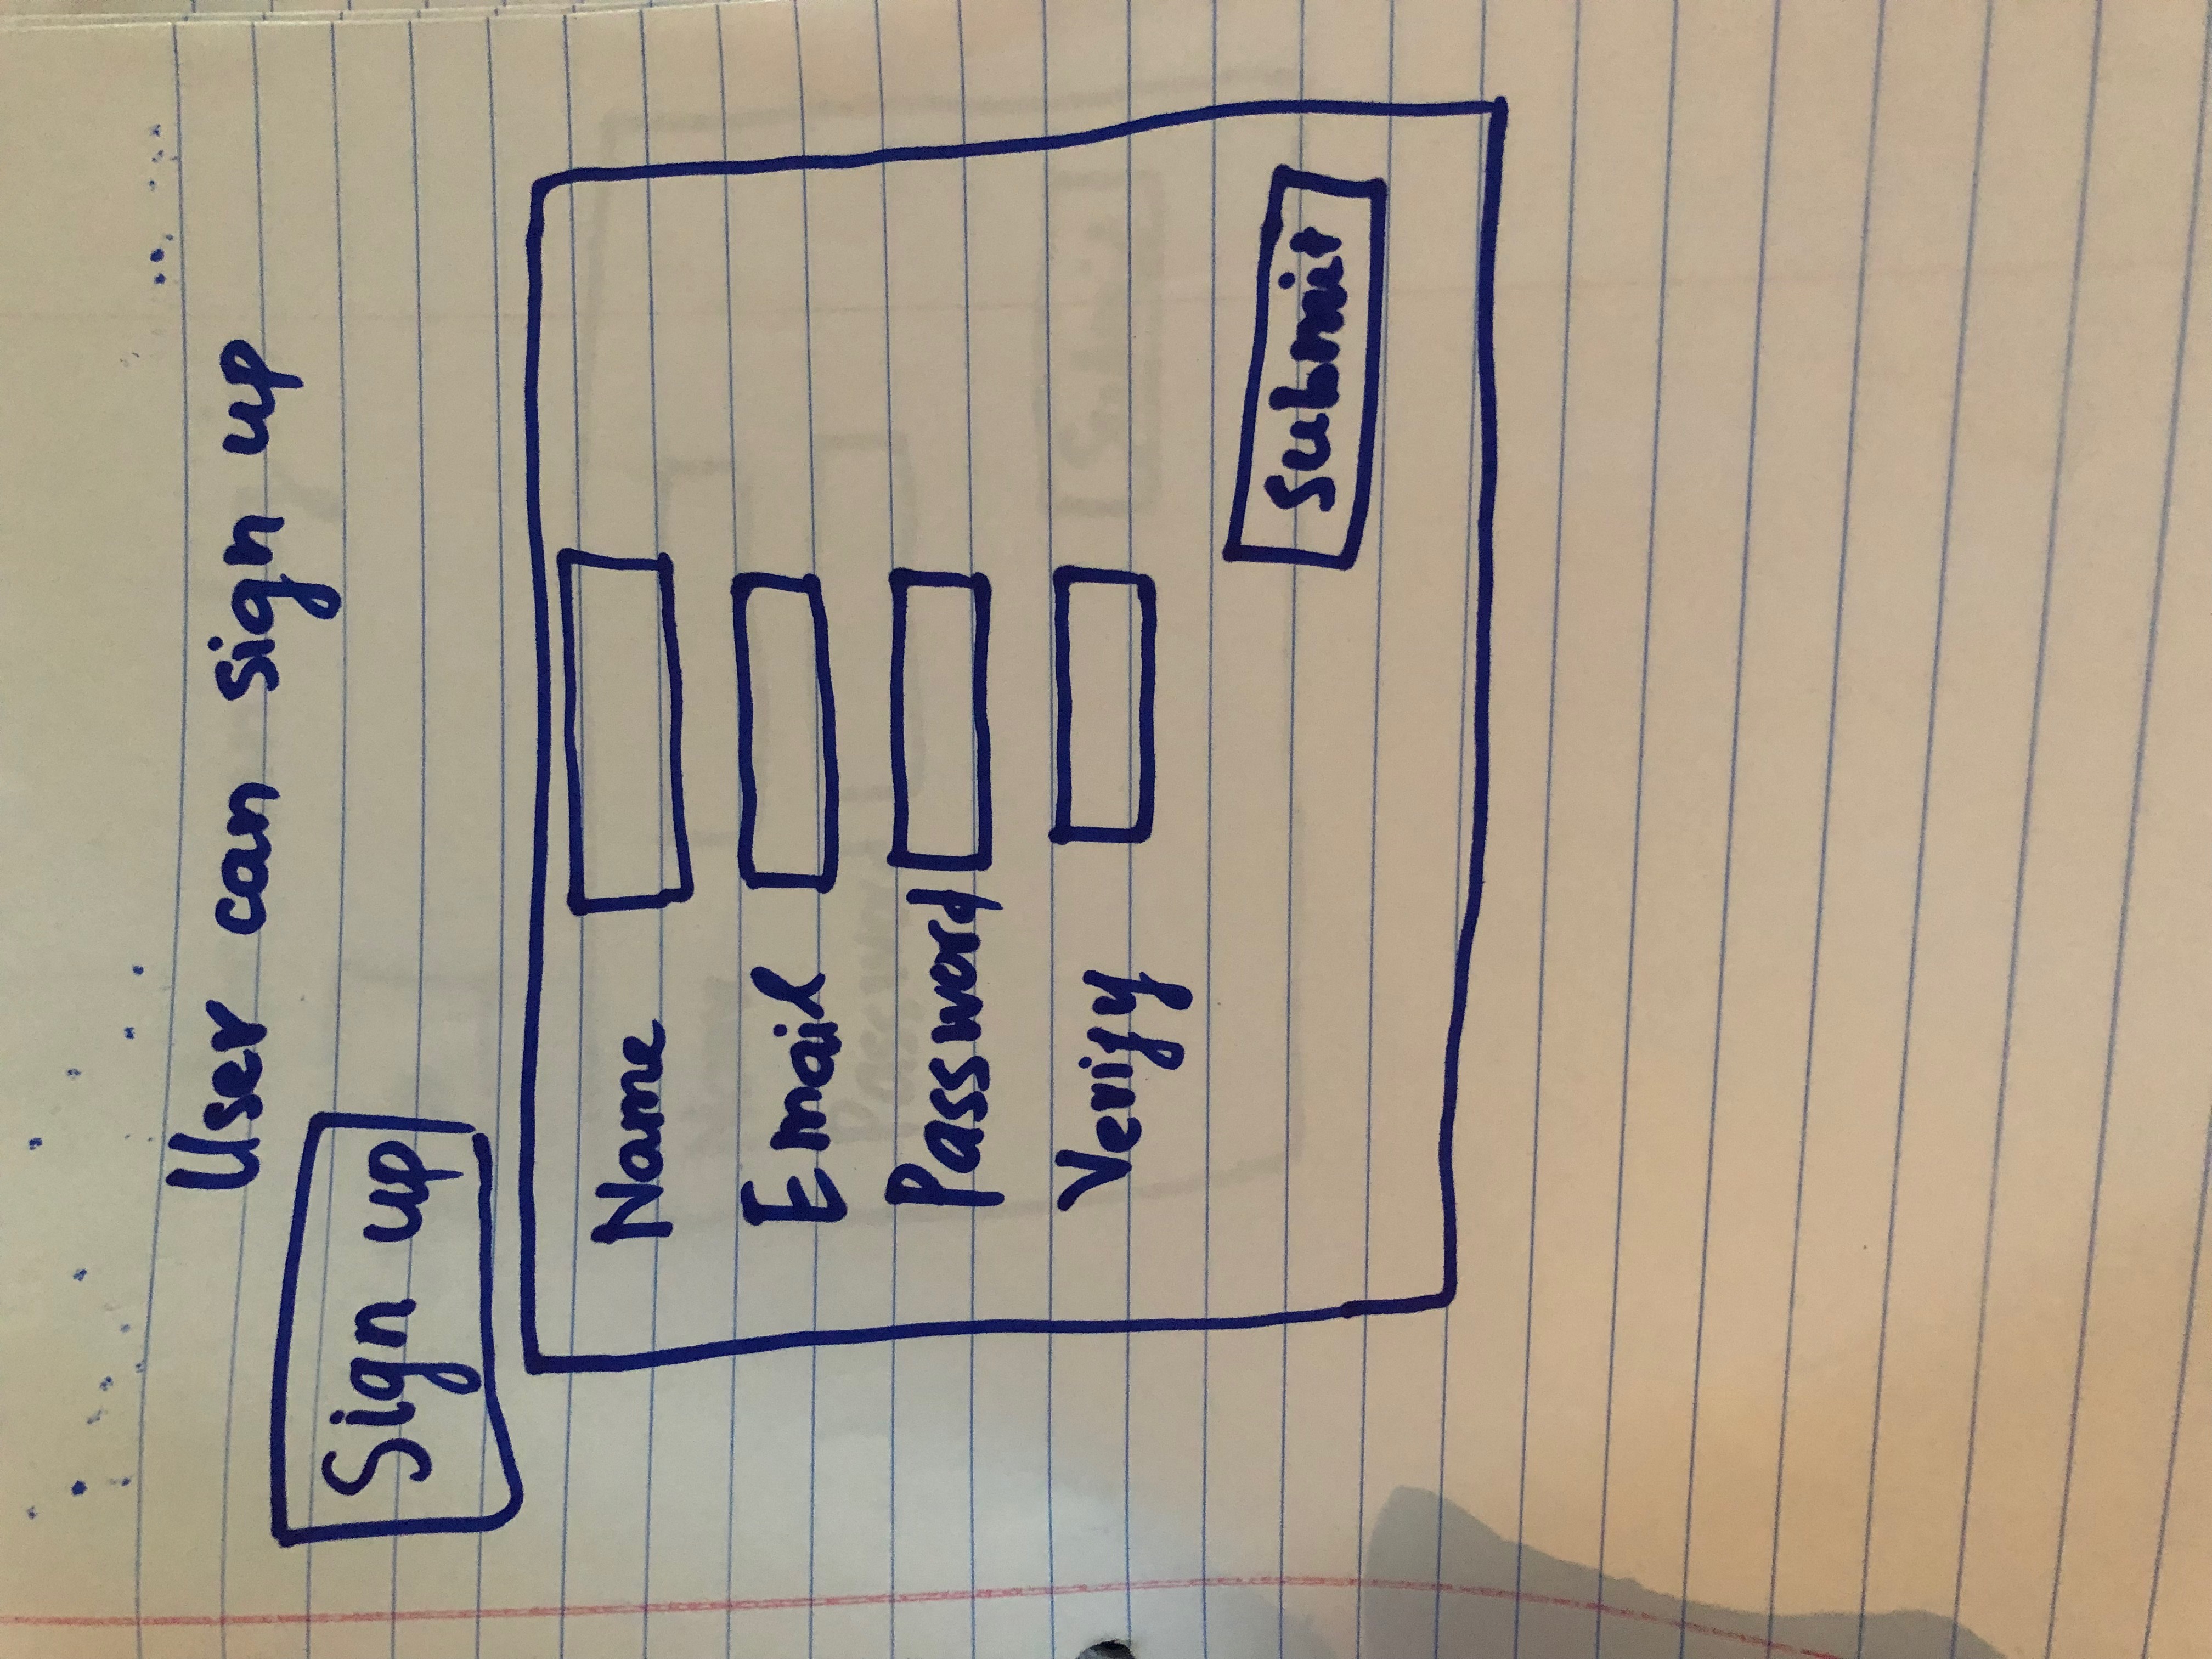 User can sign up
Sign up
Name
Email
Password
Verify
Submit